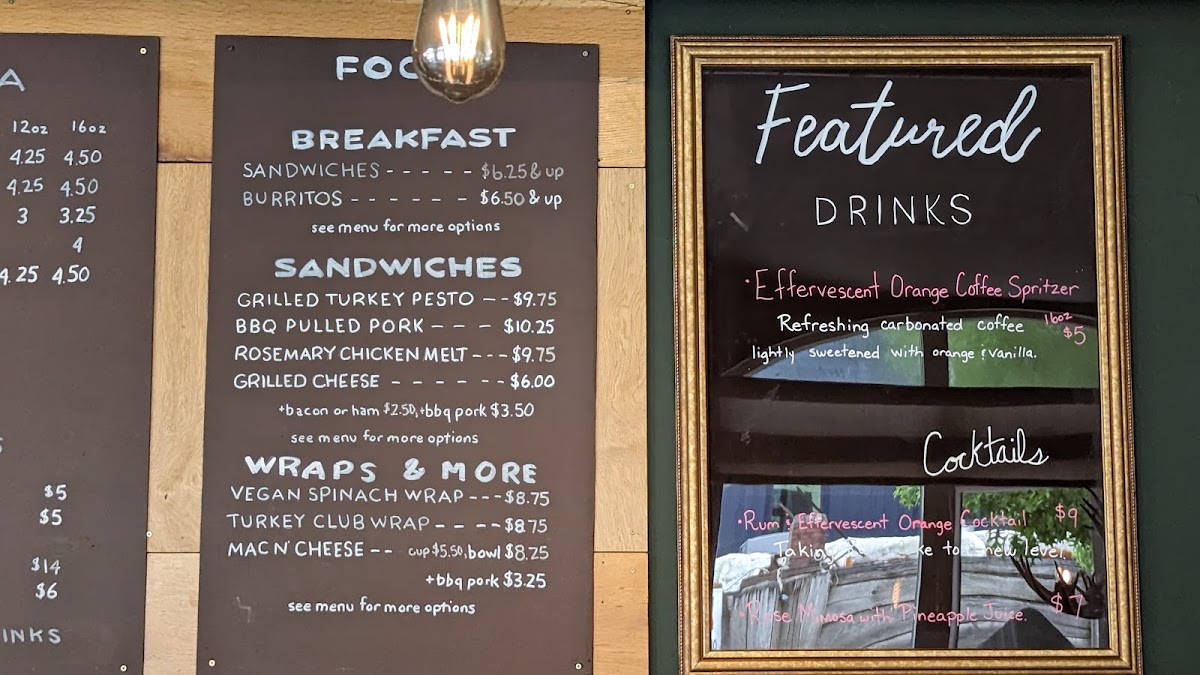 A
12oz 16oz
4.25 4.50
4.25 4.50
3 3.25
4
4.25 4.50
$5
$5
$14
$6
INKS
BREAKFAST
SANDWICHES - - - - - $6.25 & up
BURRITOS - - - - - - $6.50 & up
see menu for more options
SANDWICHES
GRILLED TURKEY PESTO - - $9.75
BBQ PULLED PORK - - - $10.25
ROSEMARY CHICKEN MELT - - - $9.75
GRILLED CHEESE - - - - - - $6.00
+bacon or ham $2.50, +bbq pork $3.50
see menu for more options
WRAPS & MORE
VEGAN SPINACH WRAP - - - $8.75
TURKEY CLUB WRAP - - - - $8.75
MAC N' CHEESE - - cup $5.50, bowl $8.25
+bbq pork $3.25
see menu for more options
Featured
DRINKS
• Effervescent Orange Coffee Spritzer
Refreshing carbonated coffee 16oz $5
lightly sweetened with orange & vanilla.
Cocktails
• Rum & Effervescent Orange Cocktail $9
Taking to new level.
• Rose Mimosa with Pineapple Juice. $7